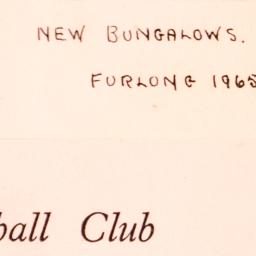 NEW BUNGALOWS.
FURLONG 1965
ball Club